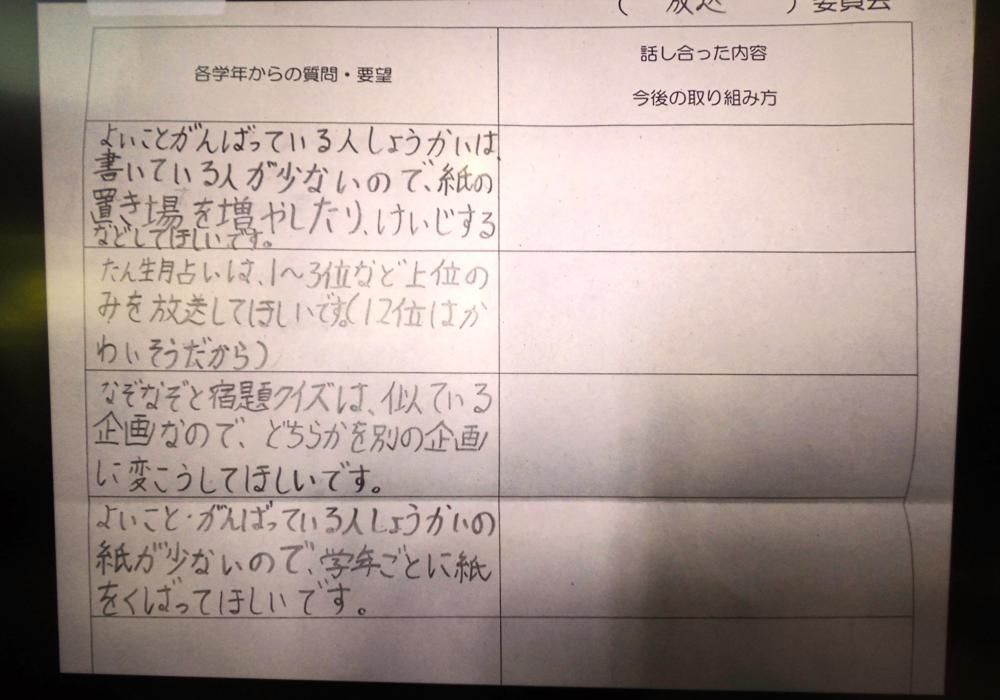 ( 放送 ) 委員会
各学年からの質問・要望
話し合った内容
今後の取り組み方
よいことがんばっている人しょうかいは、
書いている人が少ないので、紙の
置き場を増やしたり、けいじする
などしてほしいです。
たん生月占いは、1〜3位など上位の
みを放送してほしいです。(12位はか
わいそうだから)
なぞなぞと宿題クイズは、似ている
企画なので、どちらかを別の企画
に変こうしてほしいです。
よいこと・がんばっている人しょうかいの
紙が少ないので、学年ごとに紙
をくばってほしいです。